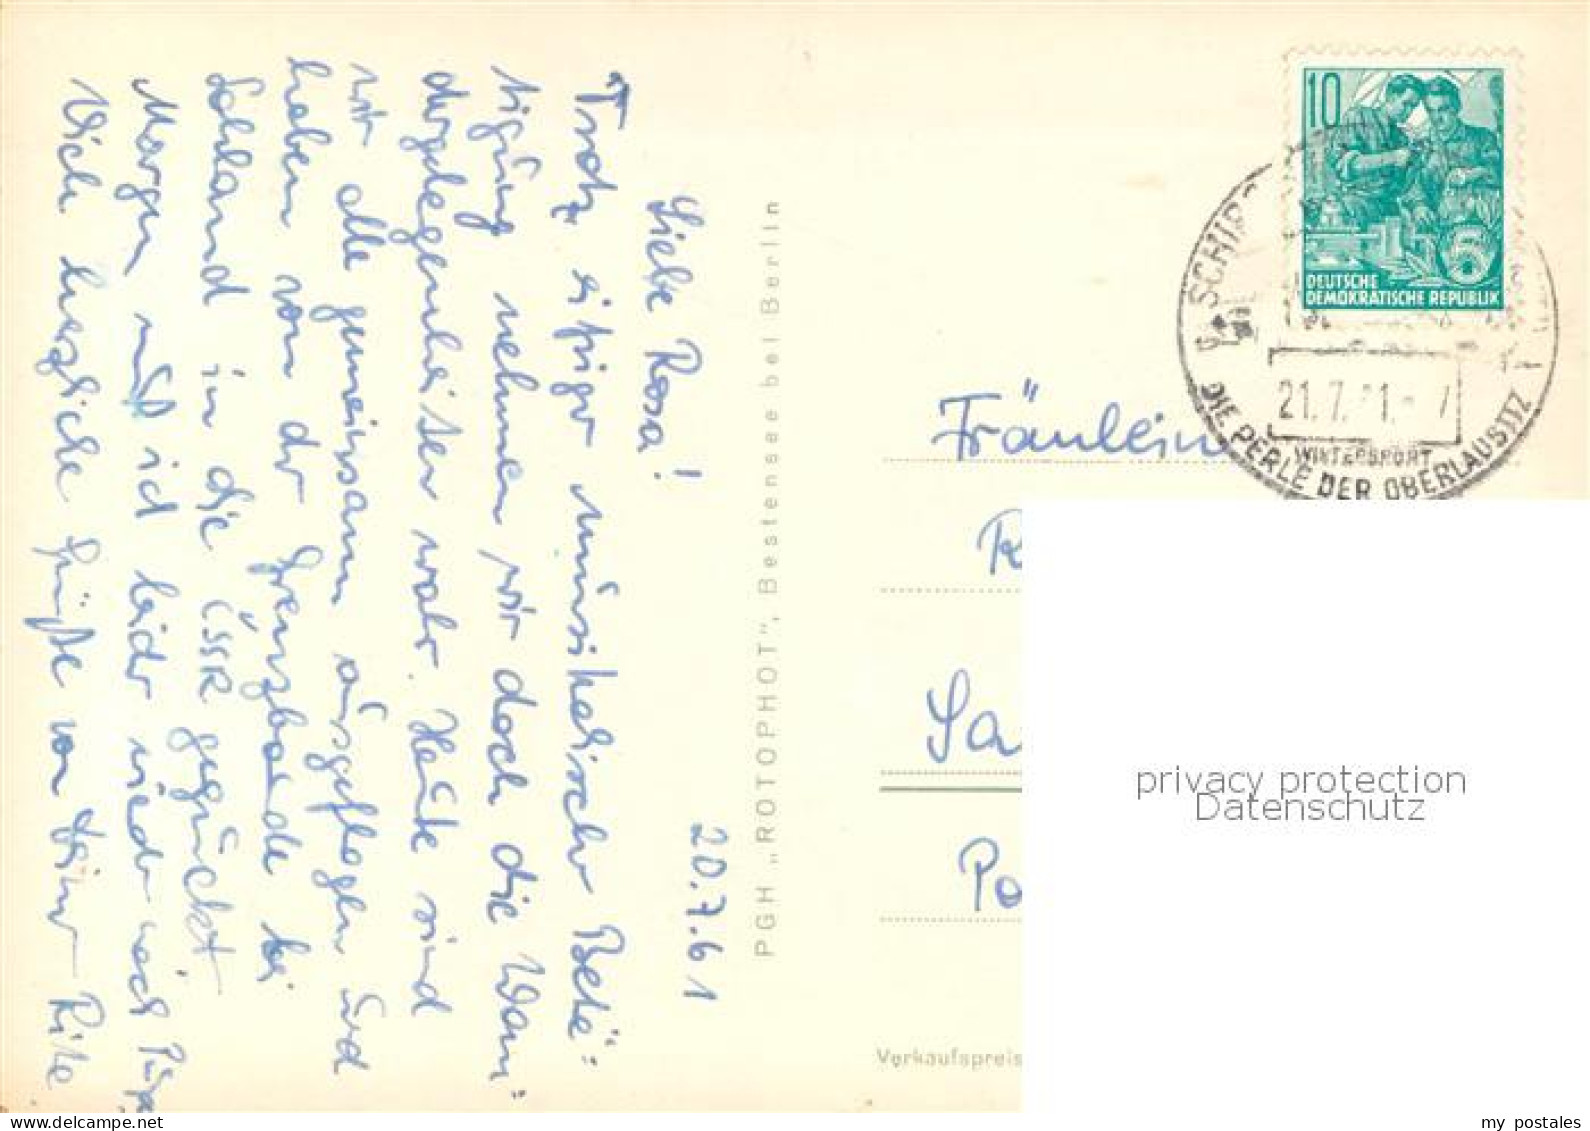 20.7.61
Liebe Rosa!
Trotz eifriger musikalischer Betä=
tigung nehmen wir doch die Wan=
dergelegenheiten wahr. Heute sind
wir alle gemeinsam ausgeflogen und
haben von der Grenzbaude bei
Sohland in die ČSSR geguckt
Morgen muß ich leider wieder nach
Viele herzliche Grüße von Deiner Rita
PGH „ROTOPHOT", Bestensee bei Berlin
10
5
DEUTSCHE
DEMOKRATISCHE REPUBLIK
21.7.
WINTERSPORT
DIE PERLE DER OBERLAUSITZ
Fräulein
R
Sa
Po
Verkaufspreis
privacy protection
Datenschutz
my postales